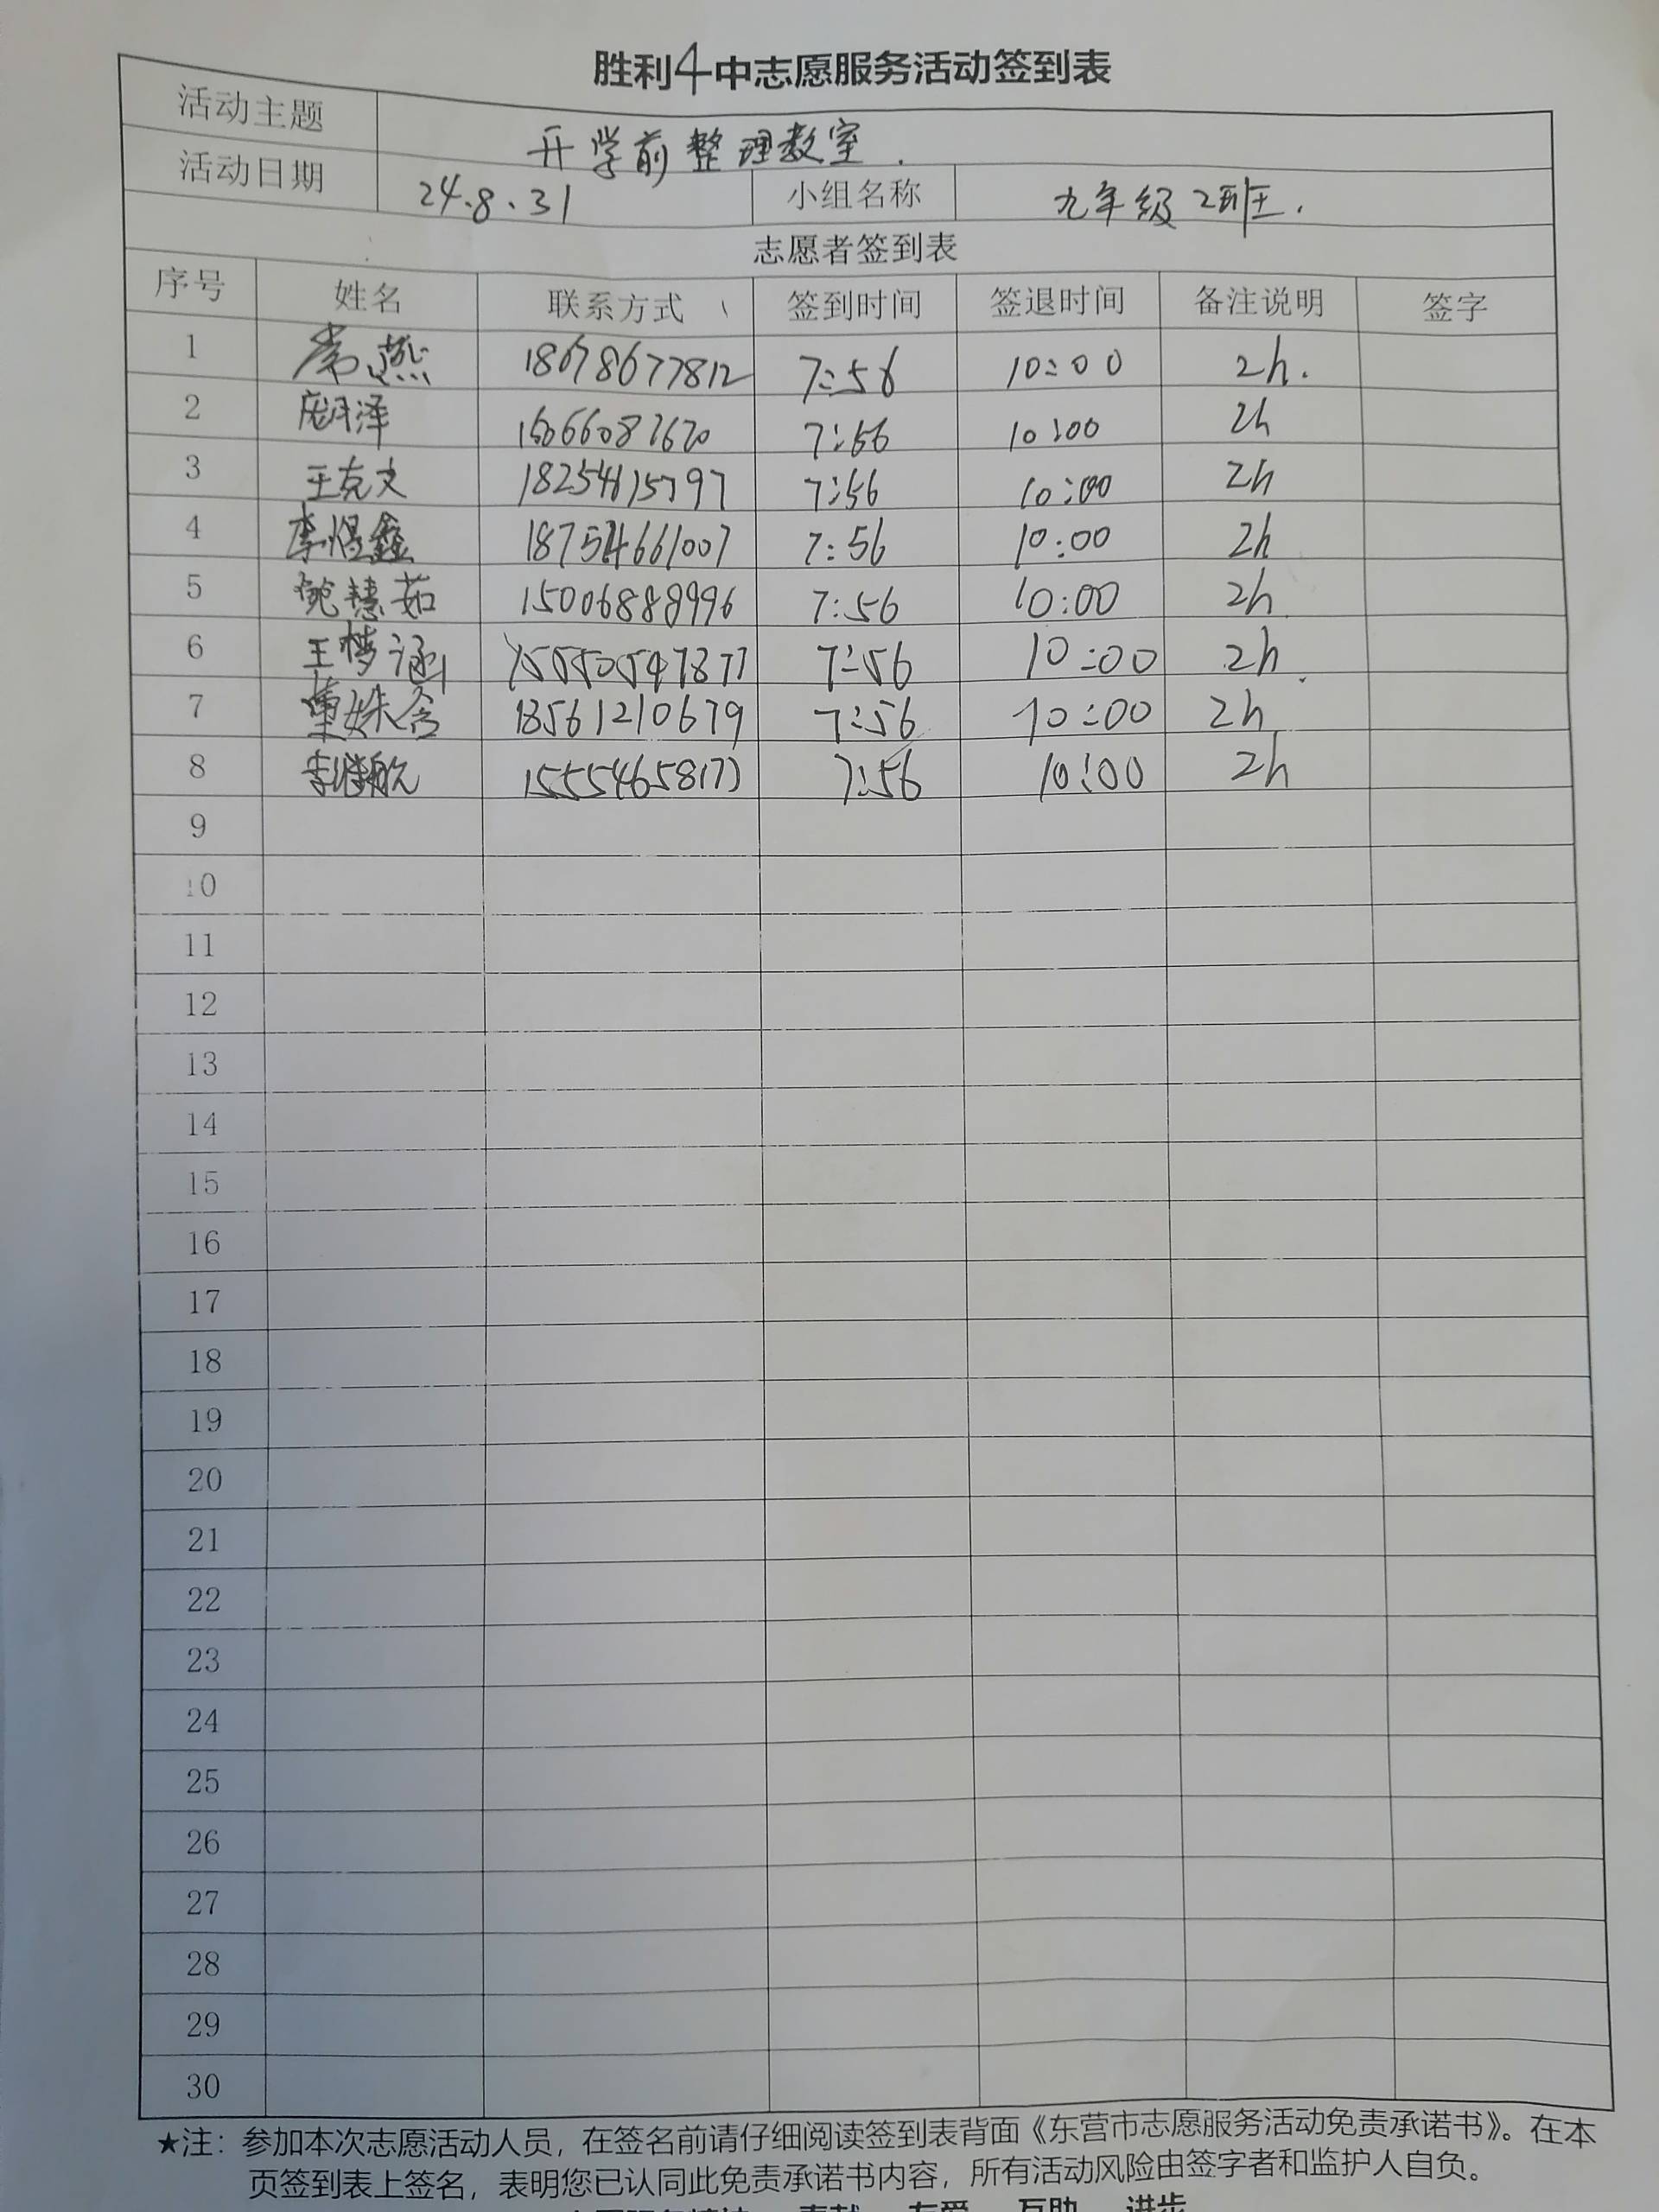 胜利4中志愿服务活动签到表
活动主题 开学前整理教室.
活动日期 24.8.31 小组名称 九年级2班.
志愿者签到表
序号 姓名 联系方式 签到时间 签退时间 备注说明 签字
1 常燕 18678677812 7:56 10:00 2h.
2 7:56 10:00 2h
3 王克文 18254615797 7:56 10:00 2h
4 李煜鑫 18754661007 7:56 10:00 2h
5 慧茹 15006888996 7:56 10:00 2h
6 王梦涵 7:56 10:00 2h
7 董姝含 18561210679 7:56 10:00 2h
8 李浩航 7:56 10:00 2h
9
10
11
12
13
14
15
16
17
18
19
20
21
22
23
24
25
26
27
28
29
30
★注：参加本次志愿活动人员，在签名前请仔细阅读签到表背面《东营市志愿服务活动免责承诺书》。在本
页签到表上签名，表明您已认同此免责承诺书内容，所有活动风险由签字者和监护人自负。
志愿服务精神 奉献 友爱 互助 进步